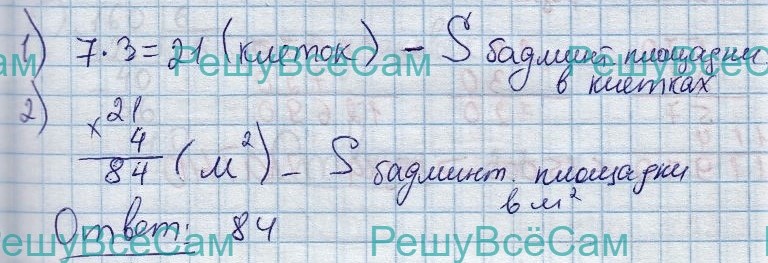 1) 7·3=21 (клеток) – S бадминт. площадки
в клетках
2) 21
× 4
84 (м²) – S бадминт. площадки
в м²
Ответ: 84
РешуВсёСам
РешуВсёСам